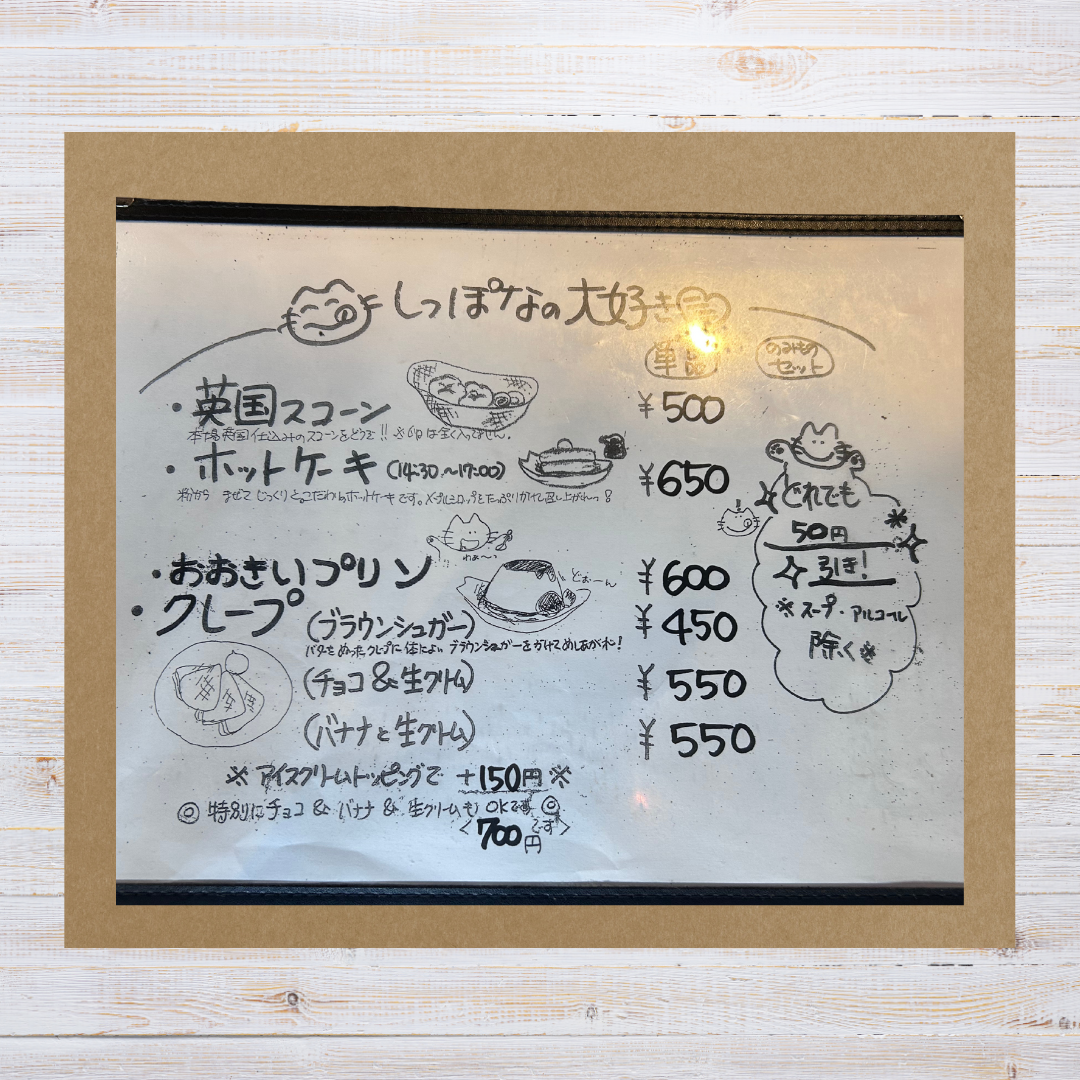 しっぽなの大好き
単品
のみもの
セット
・英国スコーン
¥500
本場英国仕込みのスコーンをどうぞ!!
・ホットケーキ(14:30~17:00)
¥650
粉から まぜて じっくりと。こだわりホットケーキです。メープルシロップをたっぷりかけて召し上がれっ!
わぁ~っ
・おおきいプリン
どぉーん
¥600
・クレープ
(ブラウンシュガー)
¥450
バターをぬったクレープに体によい ブラウンシュガーをかけてめしあがれ!
(チョコ&生クリーム)
¥550
(バナナと生クリーム)
¥550
※アイスクリームトッピングで +150円※
◎特別にチョコ & バナナ & 生クリームも OKです◎
<700円です>
どれでも
50円
引き!
※スープ・アルコール
除く※